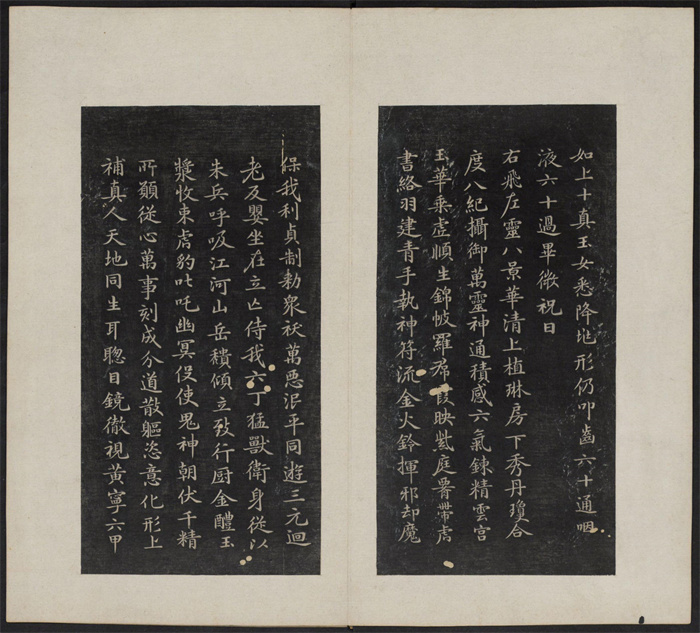 如上十真玉女悉降地形仍叩齒六十通咽
液六十過畢微祝曰
右飛左靈八景華清上植琳房下秀丹瓊合
度八紀攝御萬靈神通積感六氣鍊精雲宮
玉華乘虛順生錦帔羅帬霞映紫庭腎帶虎
書絡羽建青手執神符流金火鈴揮邪却魔
保我利貞制勑衆祅萬惡泯平同遊三元迴
老反嬰坐在立亡侍我六丁猛獸衛身從以
朱兵呼吸江河山岳穨傾立致行廚金醴玉
漿收束虎豹叱吒幽冥役使鬼神朝伏千精
所願從心萬事剋成分道散軀恣意化形上
補真人天地同生耳聰目鏡徹視黃寧六甲